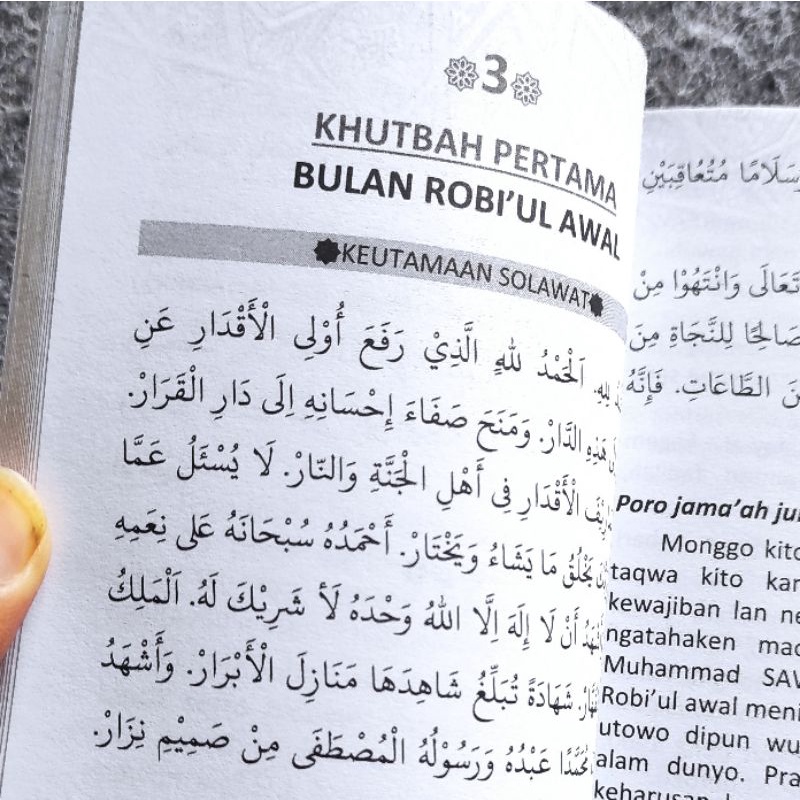 3
KHUTBAH PERTAMA
BULAN ROBI'UL AWAL
KEUTAMAAN SOLAWAT
لِلهِ. اَلْحَمْدُ لِلهِ الَّذِيْ رَفَعَ أُوْلِى الْأَقْدَارِ عَنِ
هَذِهِ الدَّارْ. وَمَنَحَ صَفَاءَ إِحْسَانِهِ إِلَى دَارِ الْقَرَارْ.
الْأَقْدَارِ فِى أَهْلِ الْجَنَّةِ وَالنَّارْ. لَا يُسْئَلُ عَمَّا
يَخْلُقُ مَا يَشَاءُ وَيَخْتَارْ. أَحْمَدُهُ سُبْحَانَهُ عَلَى نِعَمِهِ
أَنْ لَا إِلَهَ إِلَّا اللهُ وَحْدَهُ لَا شَرِيْكَ لَهُ. اَلْمَلِكُ
شَهَادَةً تُبَلِّغُ شَاهِدَهَا مَنَازِلَ الْأَبْرَارْ. وَأَشْهَدُ
مُحَمَّدًا عَبْدُهُ وَرَسُوْلُهُ الْمُصْطَفَى مِنْ صَمِيْمِ نِزَارْ.
سَلَامًا مُتَعَاقِبَيْنِ
تَعَالَى وَانْتَهُوْا مِنْ
صَالِحًا لِلنَّجَاةِ مِنَ
الطَّاعَاتِ. فَإِنَّهُ
Poro jama'ah
Monggo kito
taqwa kito
kewajiban lan
ngatahaken
Muhammad SAW
Robi'ul awal
utowo dipun
alam dunyo.
keharusan